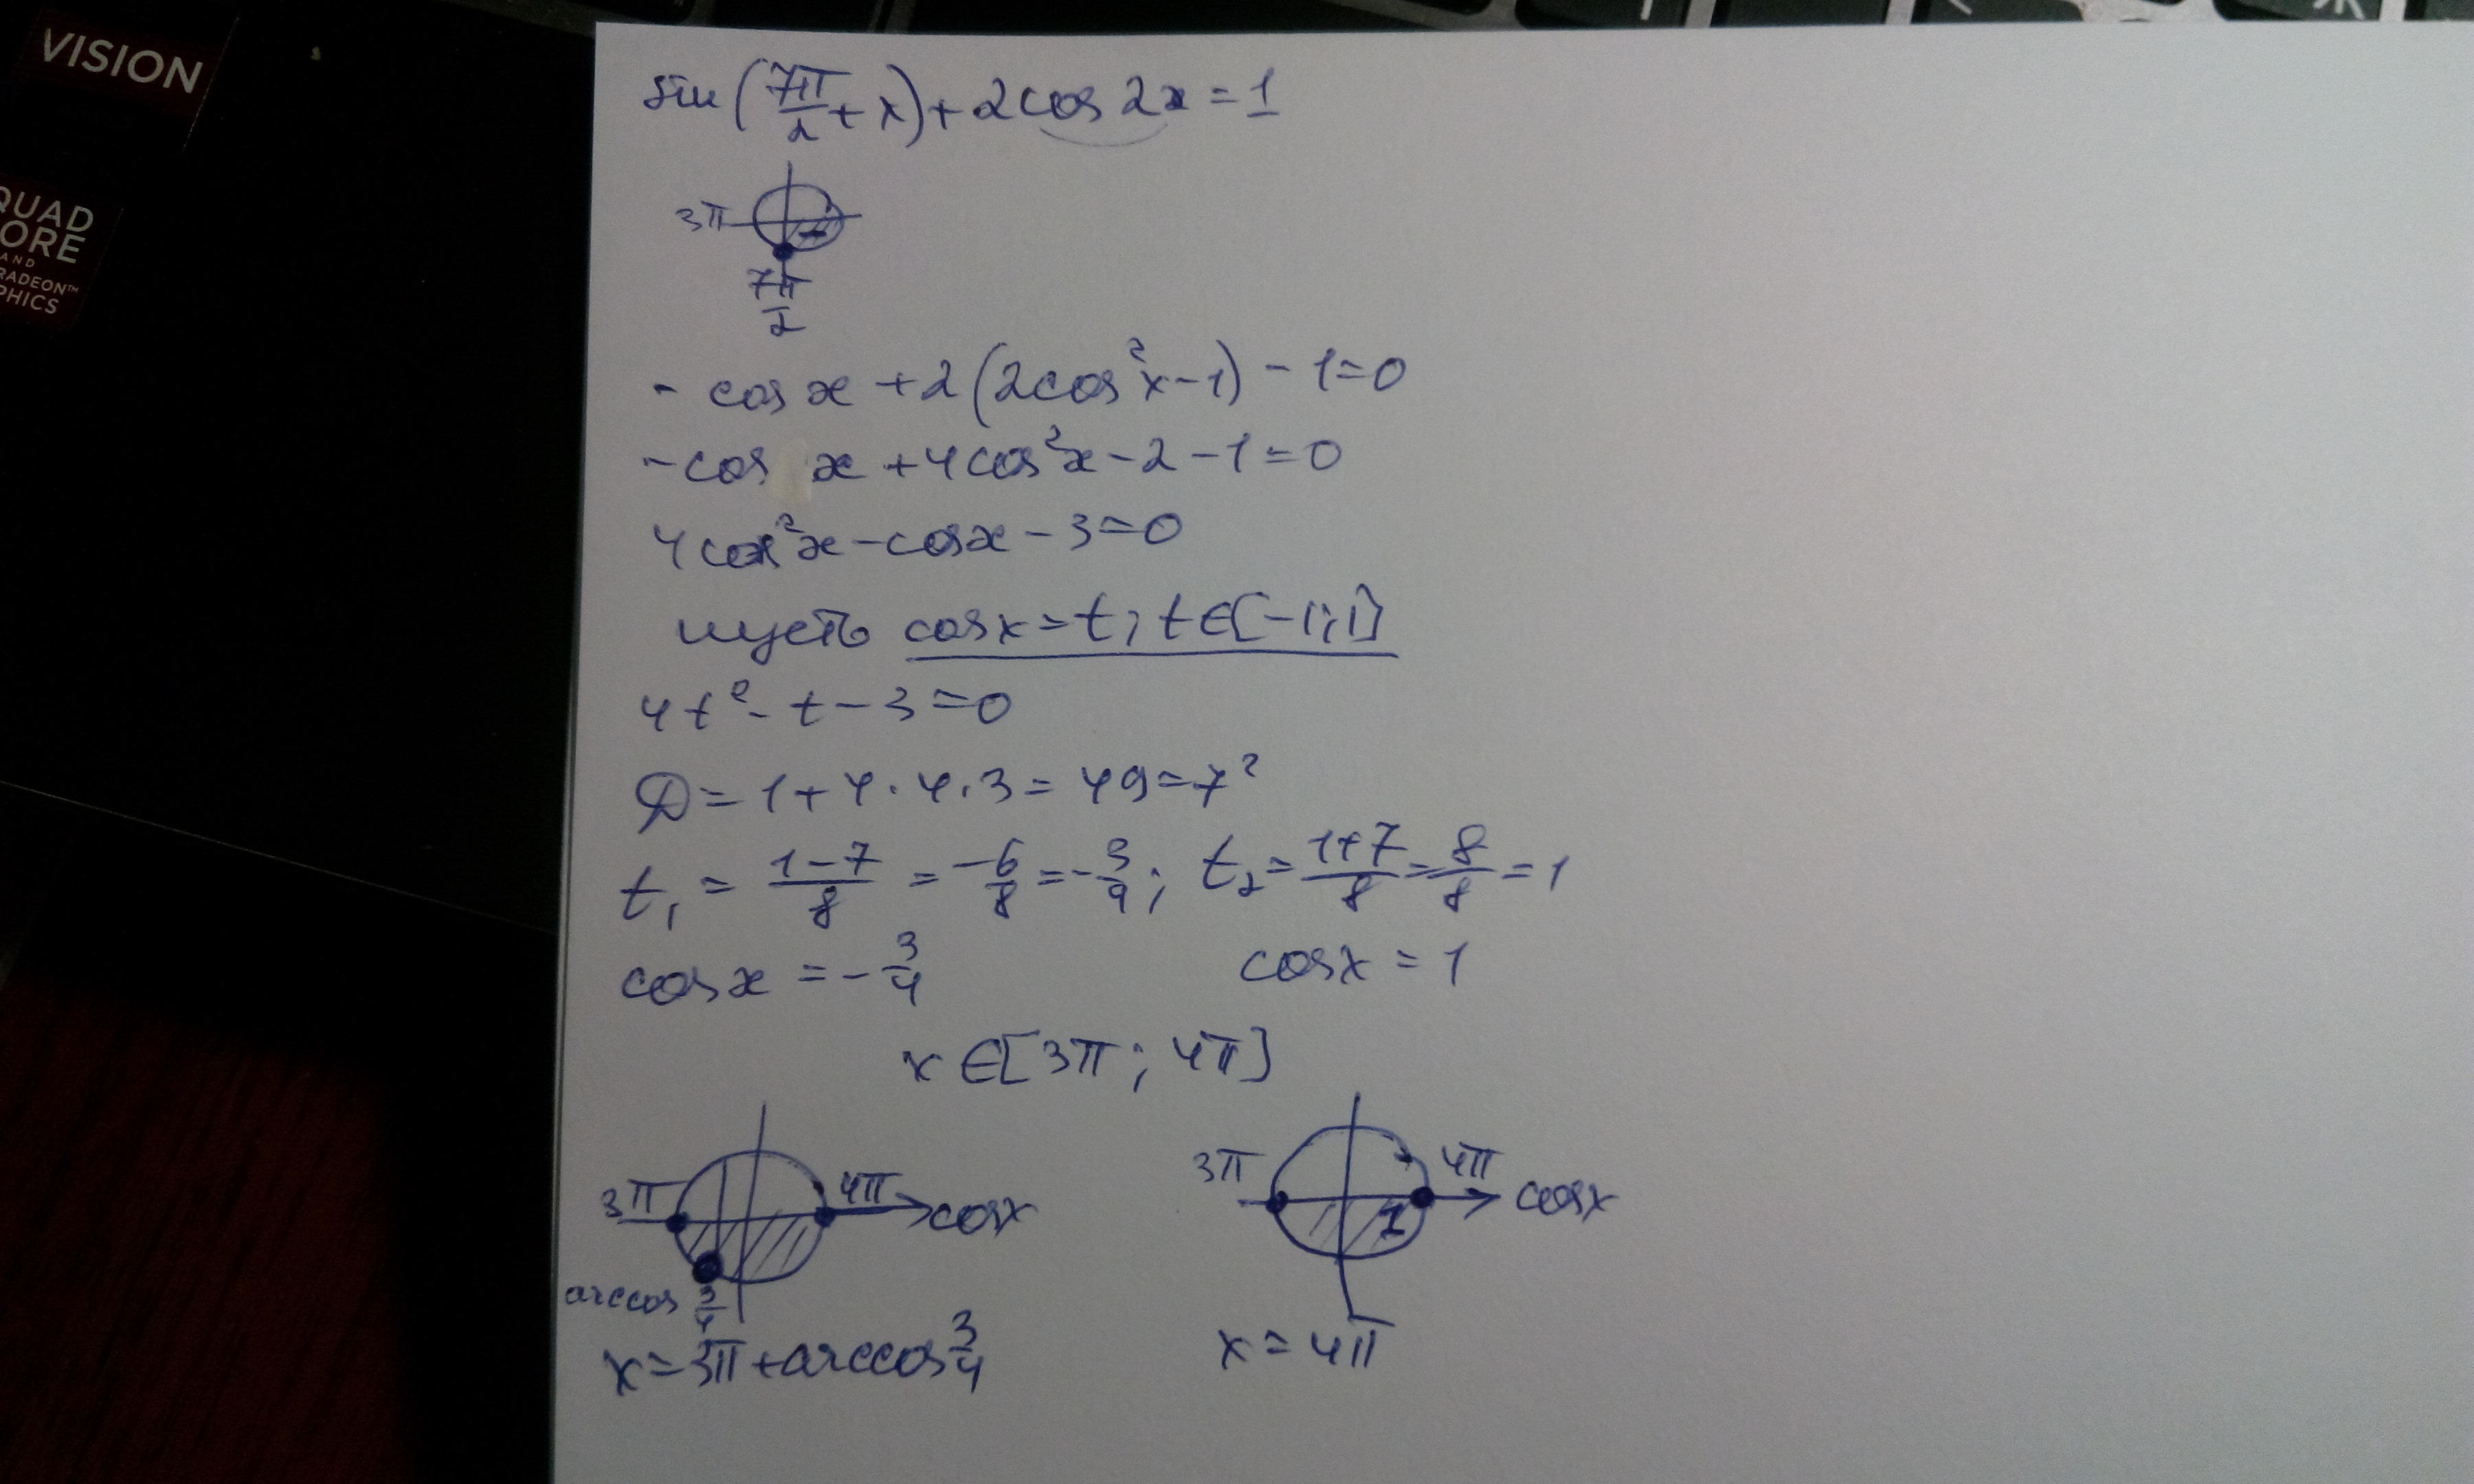 VISION
QUAD
CORE
AND
RADEON™
GRAPHICS
sin(7π/2 + x) + 2cos 2x = 1
3π
7π/2
- cos x + 2(2cos²x - 1) - 1 = 0
- cos x + 4cos²x - 2 - 1 = 0
4cos²x - cosx - 3 = 0
пусть cosx = t, t∈[-1;1]
4t² - t - 3 = 0
D = 1 + 4·4·3 = 49 = 7²
t₁ = (1-7)/8 = -6/8 = -3/4; t₂ = (1+7)/8 = 8/8 = 1
cos x = -3/4 cosx = 1
x ∈ [3π; 4π]
3π 4π cosx 3π 4π cosx
1
arccos 3/4
x = 3π + arccos 3/4 x = 4π